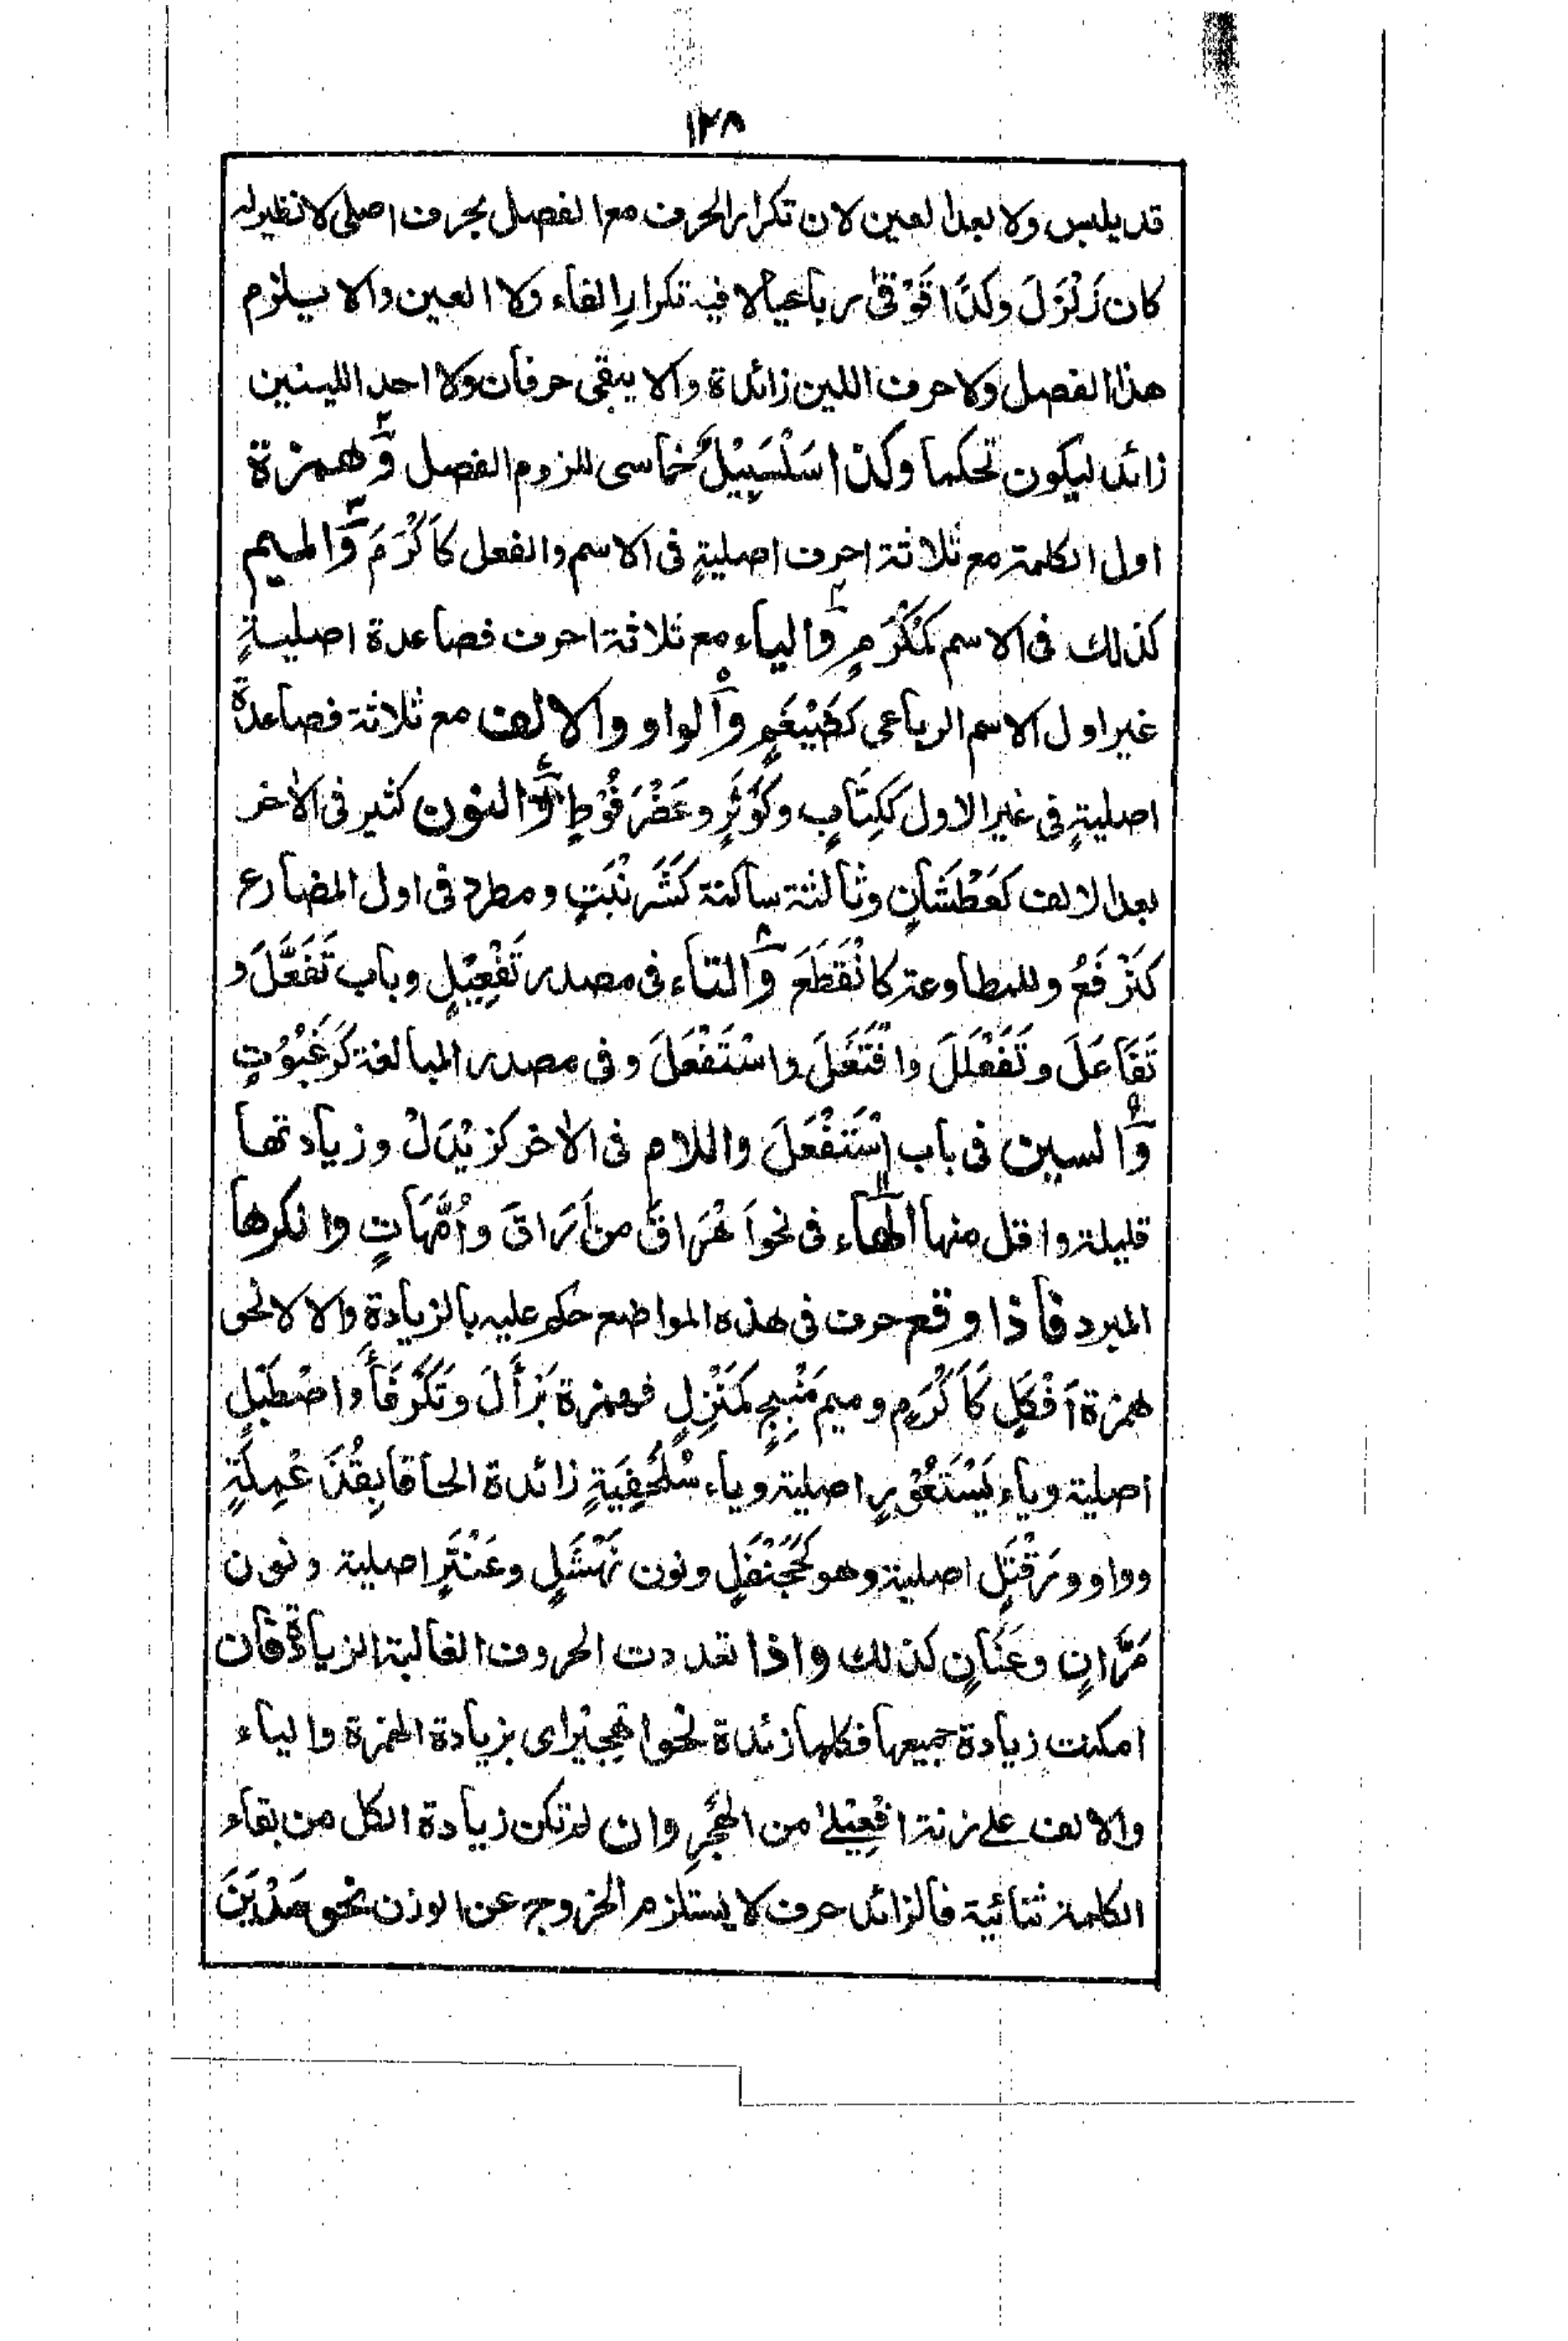 ١٢٨
قد يلبس ولا بعد العين لان تكرار الحرف مع الفصل بحرف اصلى لا نظير له
كان زَلْزَلَ وكذا قَوْقى رباعيا لا فيه تكرار الفاء ولا العين والا يسلزم
هذا الفصل ولا حرف اللين زائدة والا يبقى حرفان ولا احد اللينين
زائد ليكون تحكما وكذا سَلْسَبِيْلٌ خماسى للزوم الفصل وَّهمزة
اول الكلمة مع ثلاثة احرف اصليةٍ فى الاسم والفعل كاَكْرَمَ وَّالميم
كذلك فى الاسم كمُكْرَمٍ وَّالياء مع ثلاثة احرف فصاعدة اصليةٍ
غير اول الاسم الرباعى كضَيْغَمٍ وَّالواو والالف مع ثلاثة فصاعدةً
اصليةٍ فى غير الاول ككِتَابٍ وكَوْثَرٍ وعَضْرَفُوْطٍ وَّالنون كثير فى الاٰخر
بعد الالف كعَطْشَانٍ وثالثة ساكنة كشَرَنْبَثٍ ومطرد فى اول المضارع
كنَرْفَعُ وللمطاوعة كانْقَطَعَ وَّالتاء فى مصدر تَفْعِيْلٍ وباب تَفَعَّلَ و
تَفَاعَلَ وتَفَعْلَلَ وافْتَعَلَ واسْتَفْعَلَ وفى مصدر المبالغة كرَغَبُوْتٍ
وَّالسين فى باب اِسْتَفْعَلَ واللام فى الاٰخر كزيْدَلْ وزيادتها
قليلة واقل منها الهاء فى نحو اَهْرَاقَ من اَرَاقَ واُمَّهَاتٍ وانكرها
المبرد فاذا وقع حرف فى هذه المواضع حكم عليه بالزيادة والا لا لحق
همزة اَفْكَلٍ كاَكْرَمٍ وميم مَنْبِجٍ كمَنْزِلٍ فهمزة بَرْأَلَ وتَكَرْفَأَ واِصْطَبْلٍ
اصلية وياء يَسْتَعُوْرٍ اصلية وياء سُلَحْفِيَةٍ زائدة الحاقا بِقُذَعْمِلَةٍ
وواو وَرَنْتَلٍ اصلية وهو كجَحَنْفَلٍ ونون نَهْشَلٍ وعَنْتَرٍ اصلية ونون
مُرَّانٍ وعَنَانٍ كذلك واذا تعددت الحروف الغالبة الزيادة فان
امكنت زيادة جميعها فكلها زئدة نحو اهْجِيْرَاى بزيادة الهمزة والياء
والالف على زنة افْعِيْلىٰ من الهَجْرِ وان لم تكن زيادة الكل من بقاء
الكلمة ثنائية فالزائد حرف لا يستلزم الخروج عن الوزن نحو مَدْيَنَ